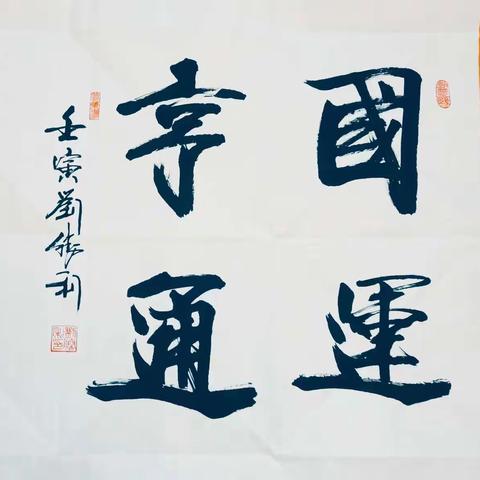 國運
亨通
壬寅劉利